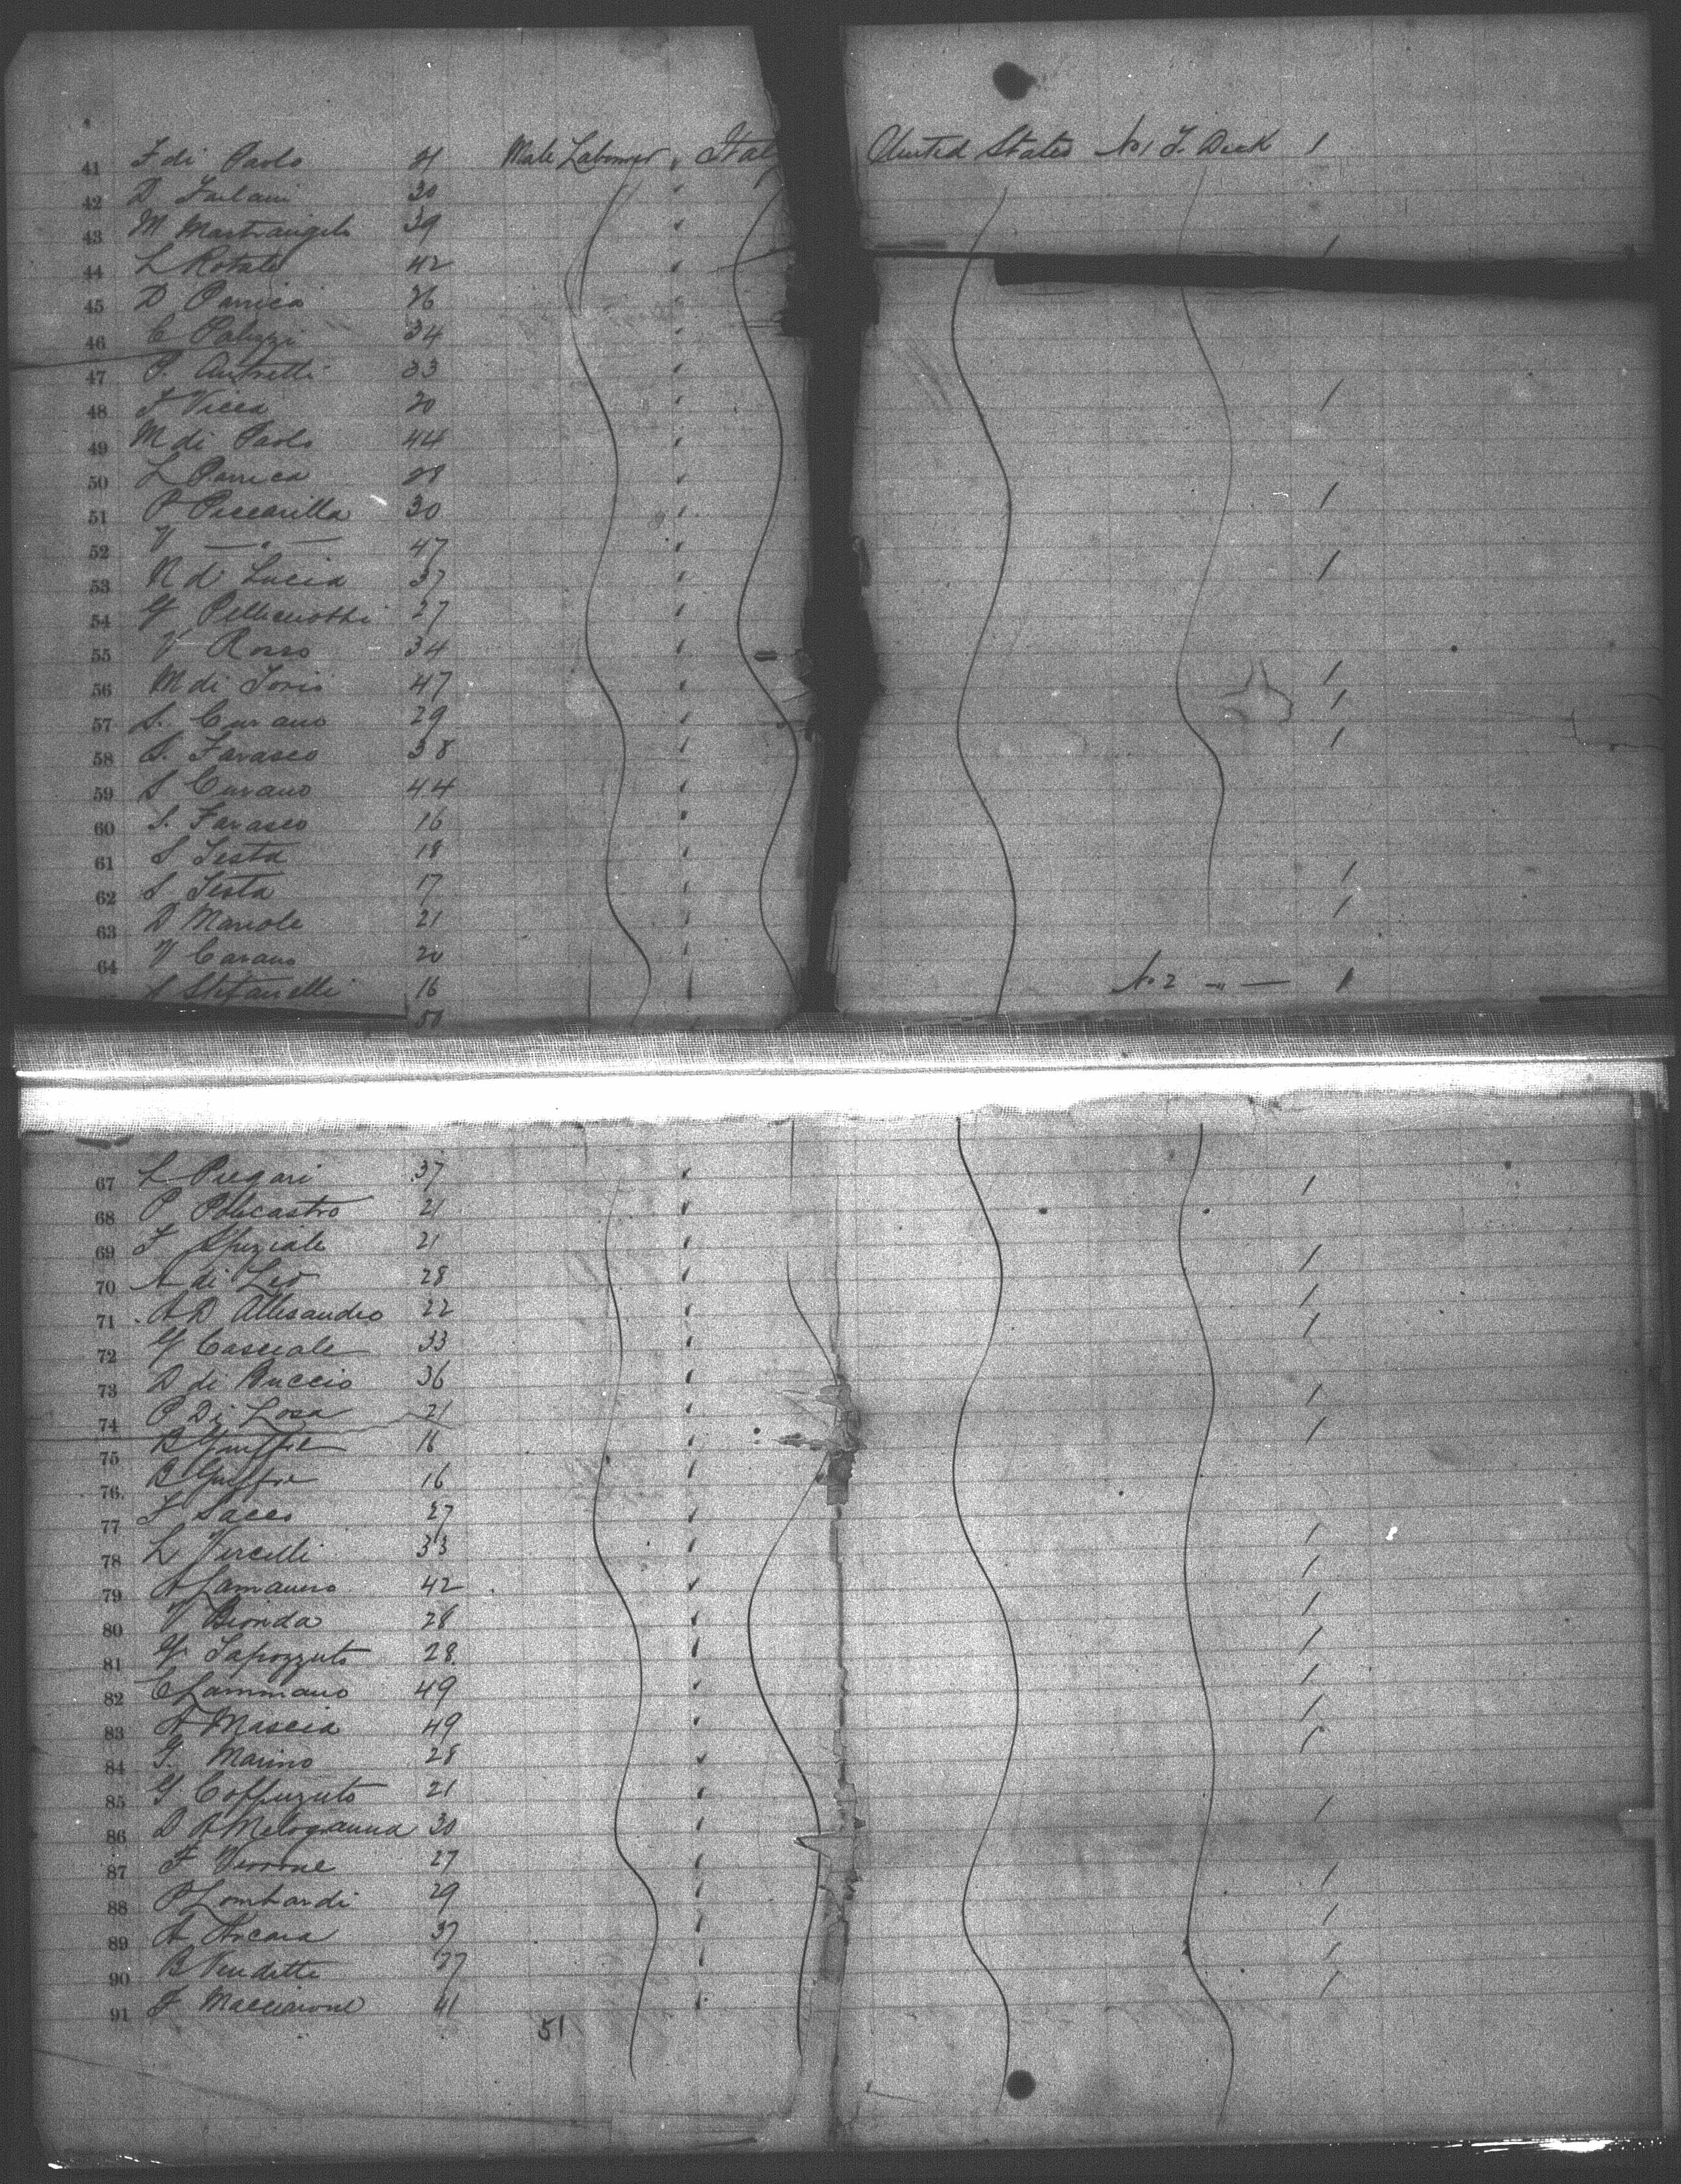 41 F di Paolo 41 Male Labourer Ital United States No 1 T. Deck 1
42 D 30
43 M Mastrangelo 39
44 L Rotale 42
45 D Parrica 26
46 C Paluzzi 34
47 P. 33
48 F Vicca 20
49 M di Paolo 44
50 L Parrica 28
51 P Piccarilla 30
52 V — " — 47
53 N di Lucia 37
54 G Pellicciotti 27
55 V Rosso 34
56 M di Iorio 47
57 S. Curano 29
58 S. Farasco 38
59 S Curano 44
60 S. Farasco 16
61 S Testa 18
62 S Testa 17
63 D Mariole 21
64 V Carano 20
A Stefanelli 16 No 2 — " — 1
50
67 L Pregari 37
68 P Policastro 21
69 F Speziale 21
70 A di Leo 28
71 A D Allesandro 22
72 G Casciale 33
73 D di Buccio 36
74 P Di Losa 21
75 B 16
76. B 16
77 F Sacco 27
78 L Vercelli 33
79 A Lamanno 42
80 V Bionda 28
81 G Sapozzuto 28
82 C Lammano 49
83 A Mascia 49
84 G. Marino 28
85 G Coppuzuto 21
86 D A Melogranna 30
87 F Verrone 27
88 P Lombardi 29
89 A Arcara 37
90 B Venditti 27
91 F Maccarone 41
51